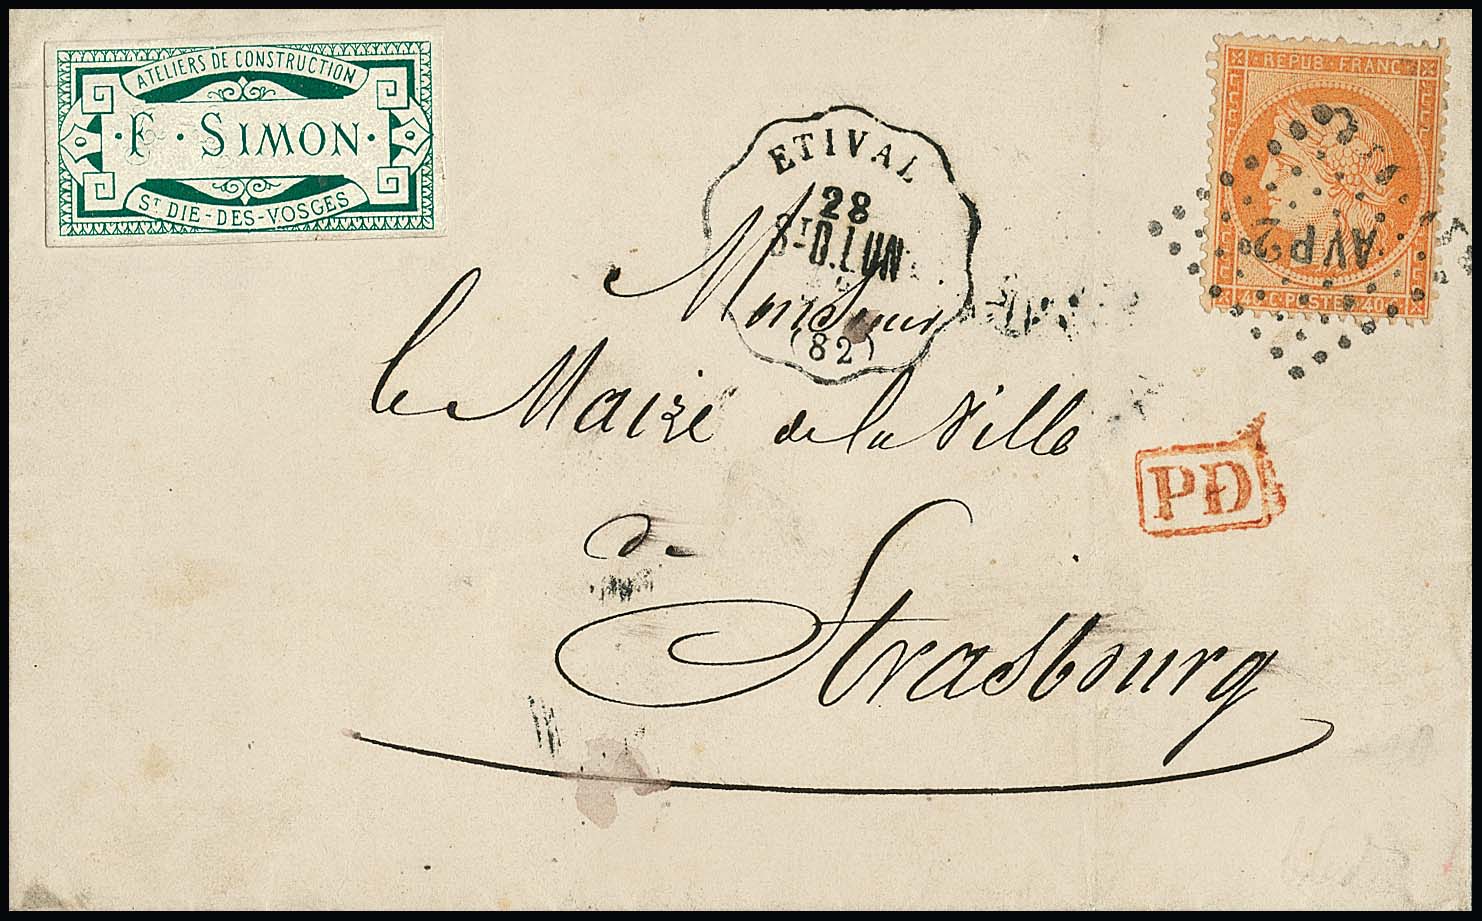 ATELIERS DE CONSTRUCTION
· F · SIMON ·
ST DIE-DES-VOSGES
ETIVAL
28
ST D.LUN
(82)
REPUB. FRANC
40 C. POSTES 40
AVP2
Monsieur
le Maire de la Ville
de
Strasbourg
PD